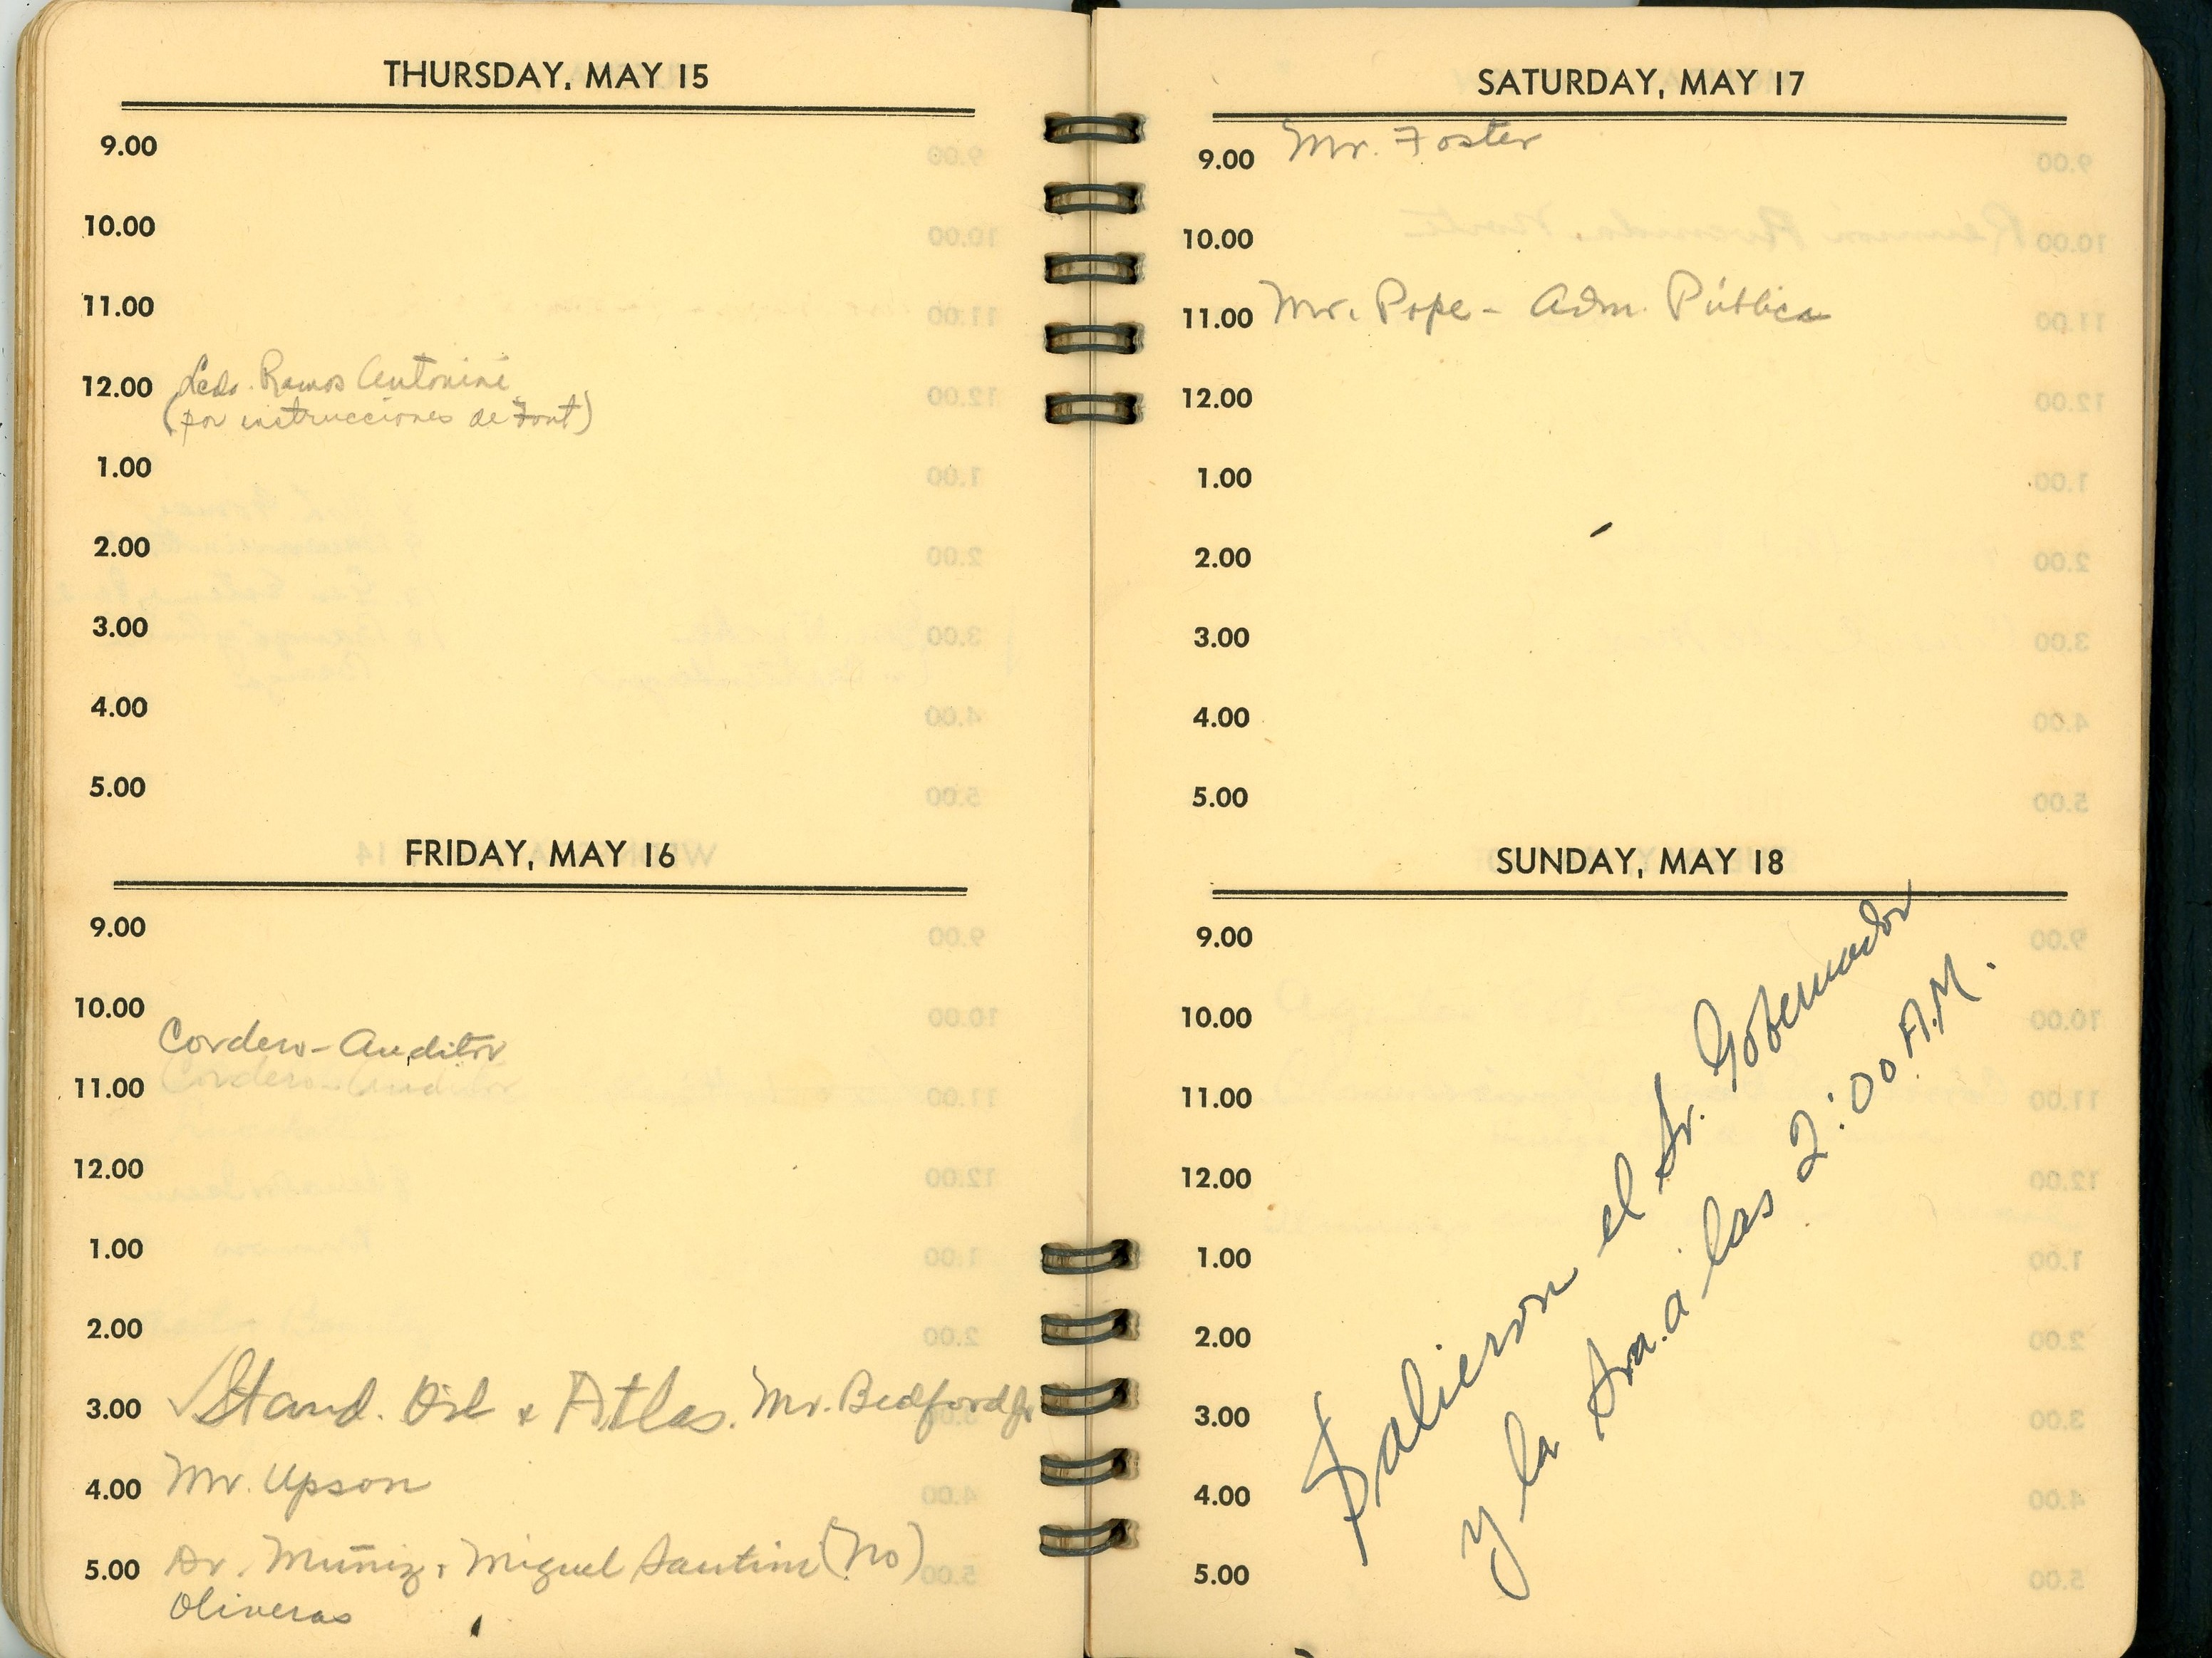 THURSDAY, MAY 15
9.00
10.00
11.00
12.00 Lcdo. Ramos Antonini
(por instrucciones de Font)
1.00
2.00
3.00
4.00
5.00
FRIDAY, MAY 16
9.00
10.00
Cordero - Auditor
11.00 Cordero - Auditor
12.00
1.00
2.00
3.00 Stand. Oil & Atlas. Mr. Bedford Jr
4.00 Mr. Upson
5.00 Dr. Muñiz, Miguel Santini (No)
Oliveras
SATURDAY, MAY 17
9.00 Mr. Foster
10.00
11.00 Mr. Pope - Adm. Pública
12.00
1.00
2.00
3.00
4.00
5.00
SUNDAY, MAY 18
9.00
10.00
11.00
12.00
1.00
2.00
3.00
4.00
5.00
Salieron el Sr. Gobernador
y la Sra. a las 2:00 A.M.